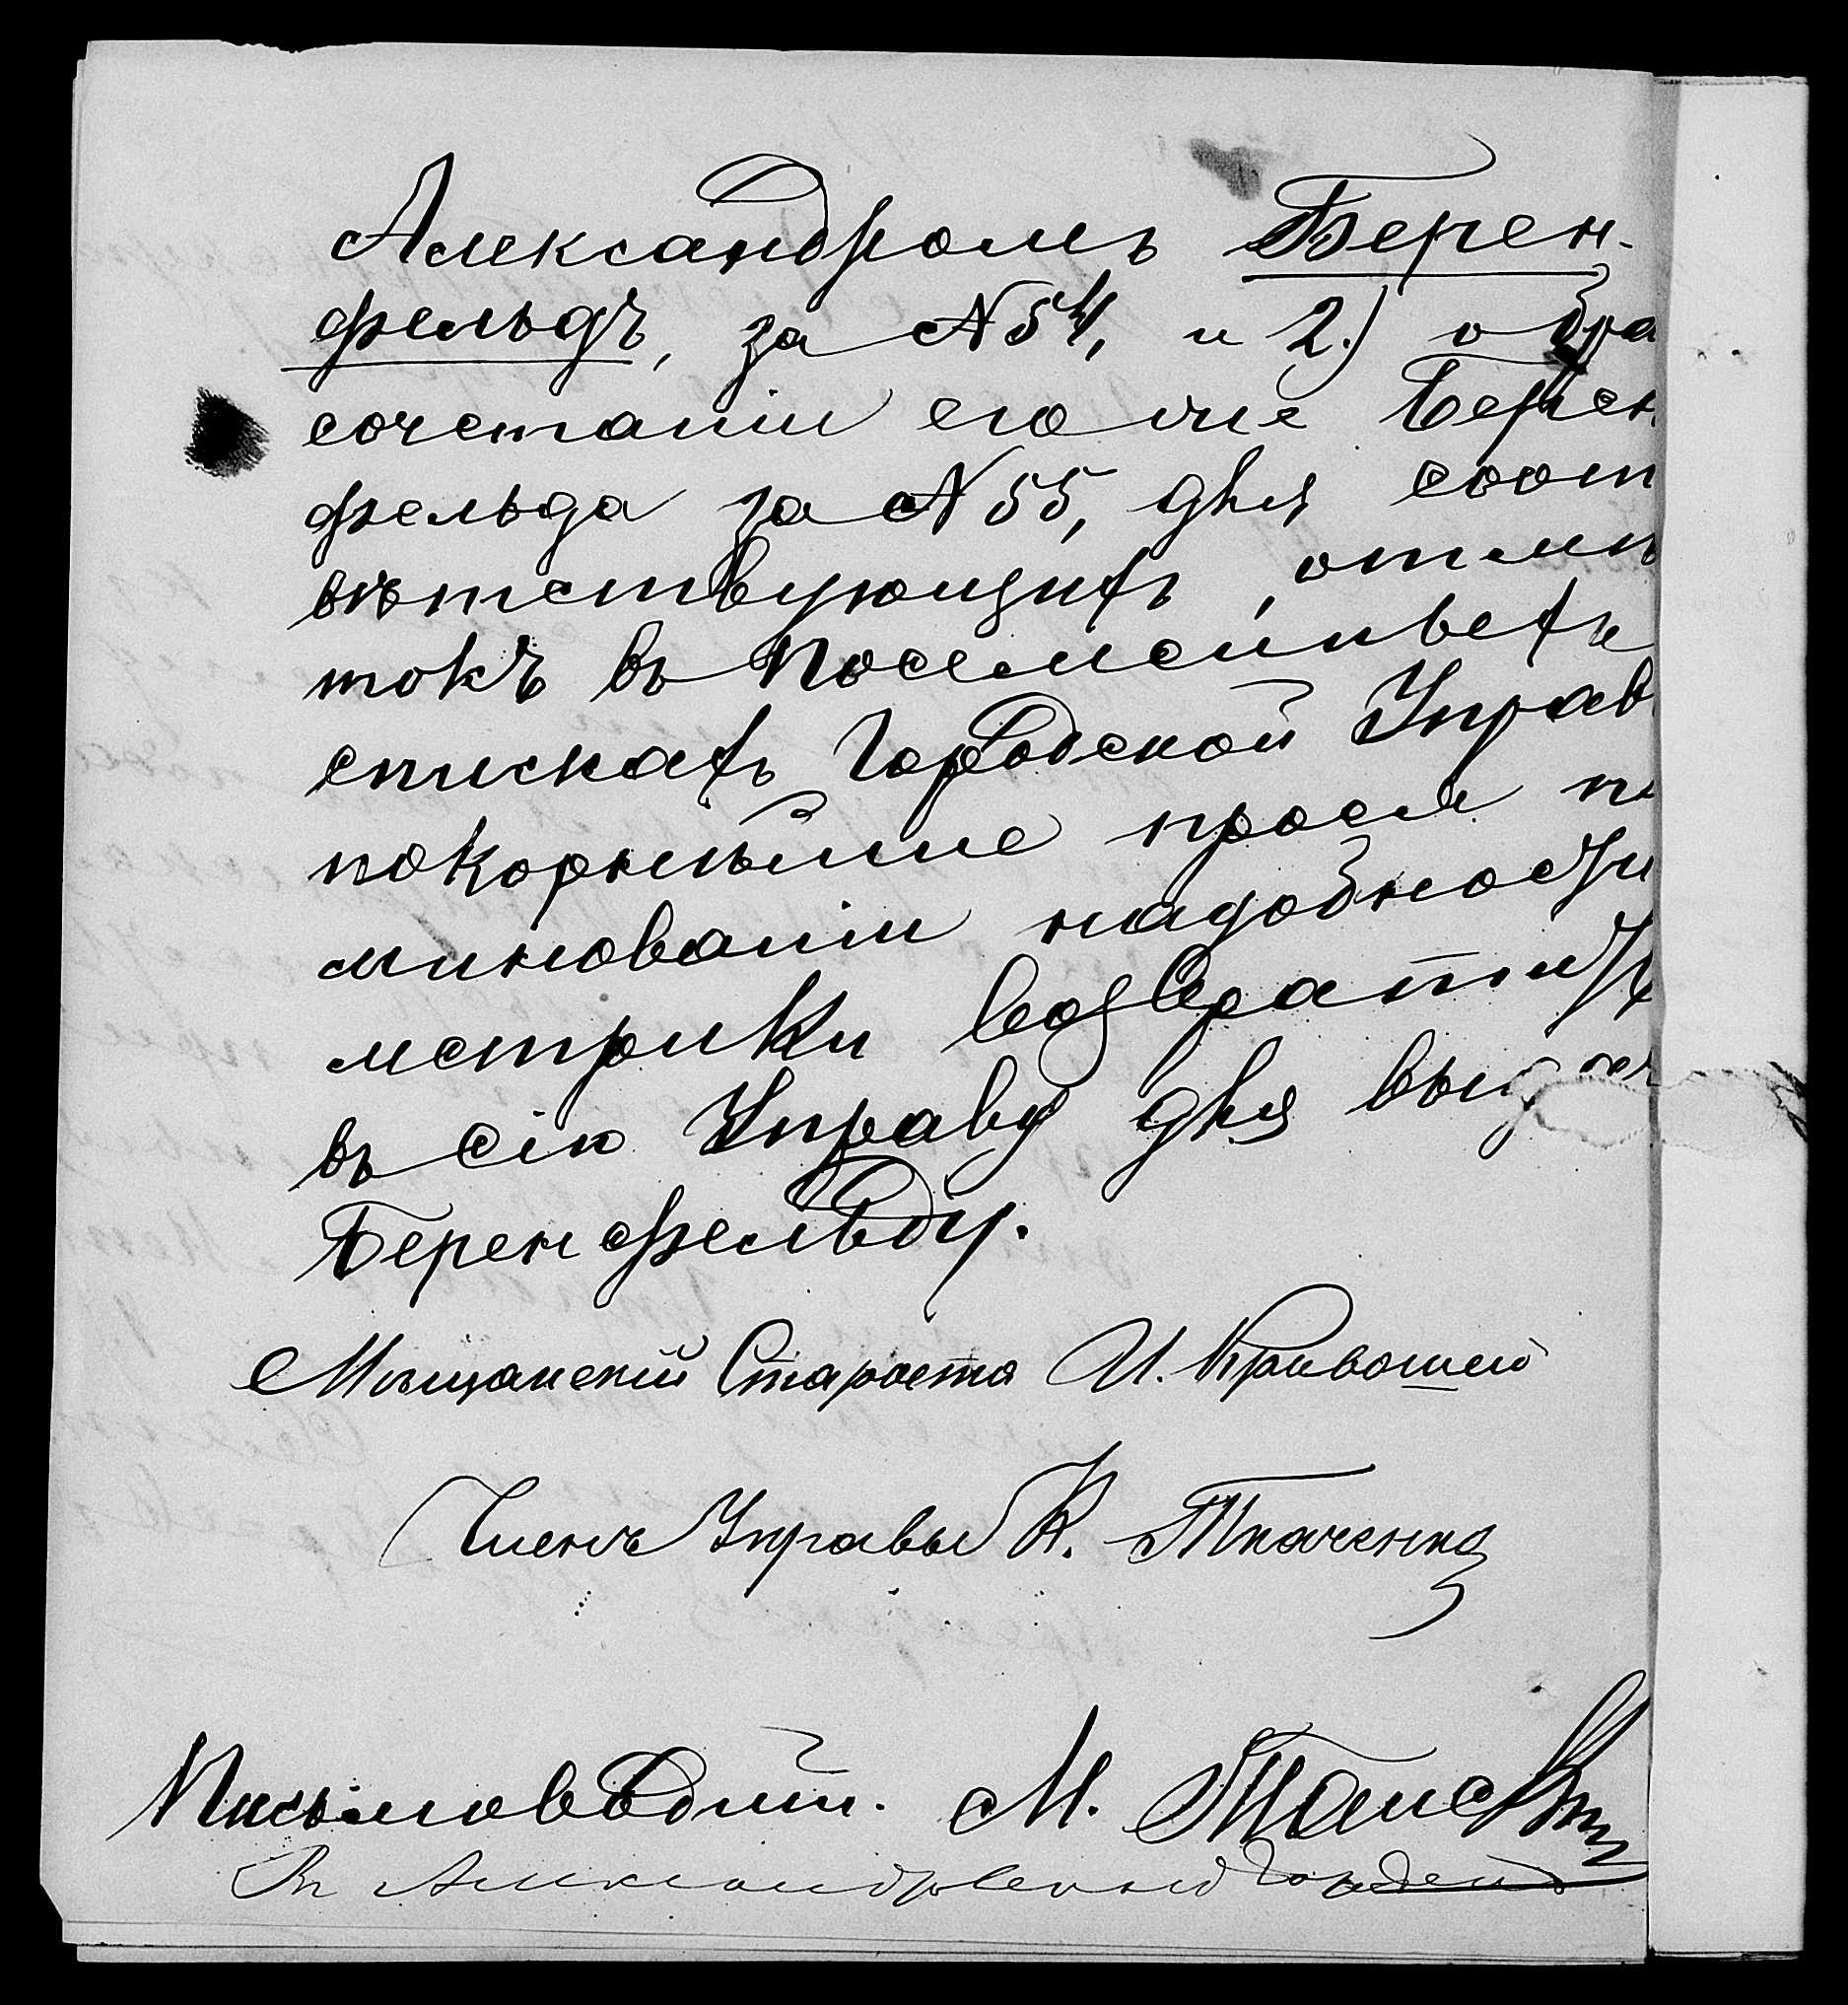 Александромъ Берен-
фельдъ, за № 54, и 2.) о бра
сочетаніи его же Берен
фельда за № 55, для соот
вѣтствующихъ отмѣ
токъ въ посемейныхъ
спискахъ Городской Управ
покорнѣйше прося по
минованіи надобности
метрики возвратить
въ сію Управу для выдачи
Беренфельду.
Мѣщанскій Староста И. Кривошей
Членъ Управы К. Ткаченко
Письмоводит. М.
Въ Александровскую Городск